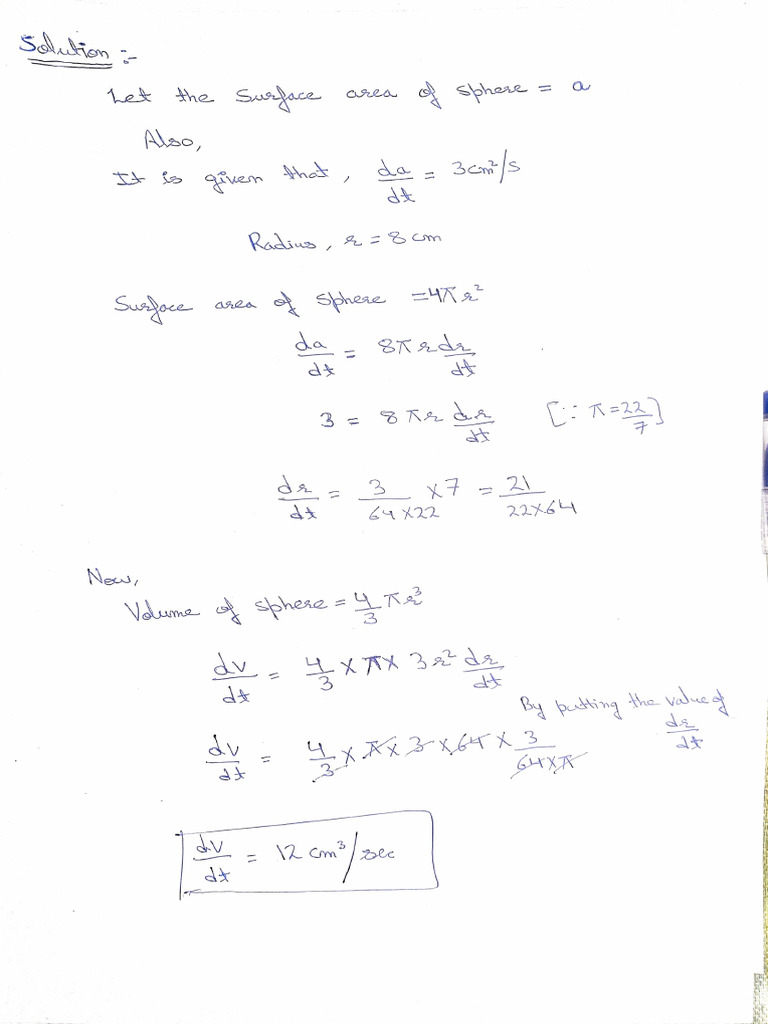 Solution :-
Let the surface area of sphere = a
Also,
It is given that, da/dt = 3cm²/s
Radius, r = 8cm
Surface area of sphere = 4πr²
da/dt = 8πr dr/dt
3 = 8πr dr/dt [∵ π = 22/7]
dr/dt = 3/(64×22) ×7 = 21/(22×64)
Now,
Volume of sphere = 4/3 πr³
dv/dt = 4/3 × π × 3r² dr/dt
By putting the value of dr/dt
dv/dt = 4/3 × π × 3 × 64 × 3/(64×π)
dv/dt = 12 cm³/sec